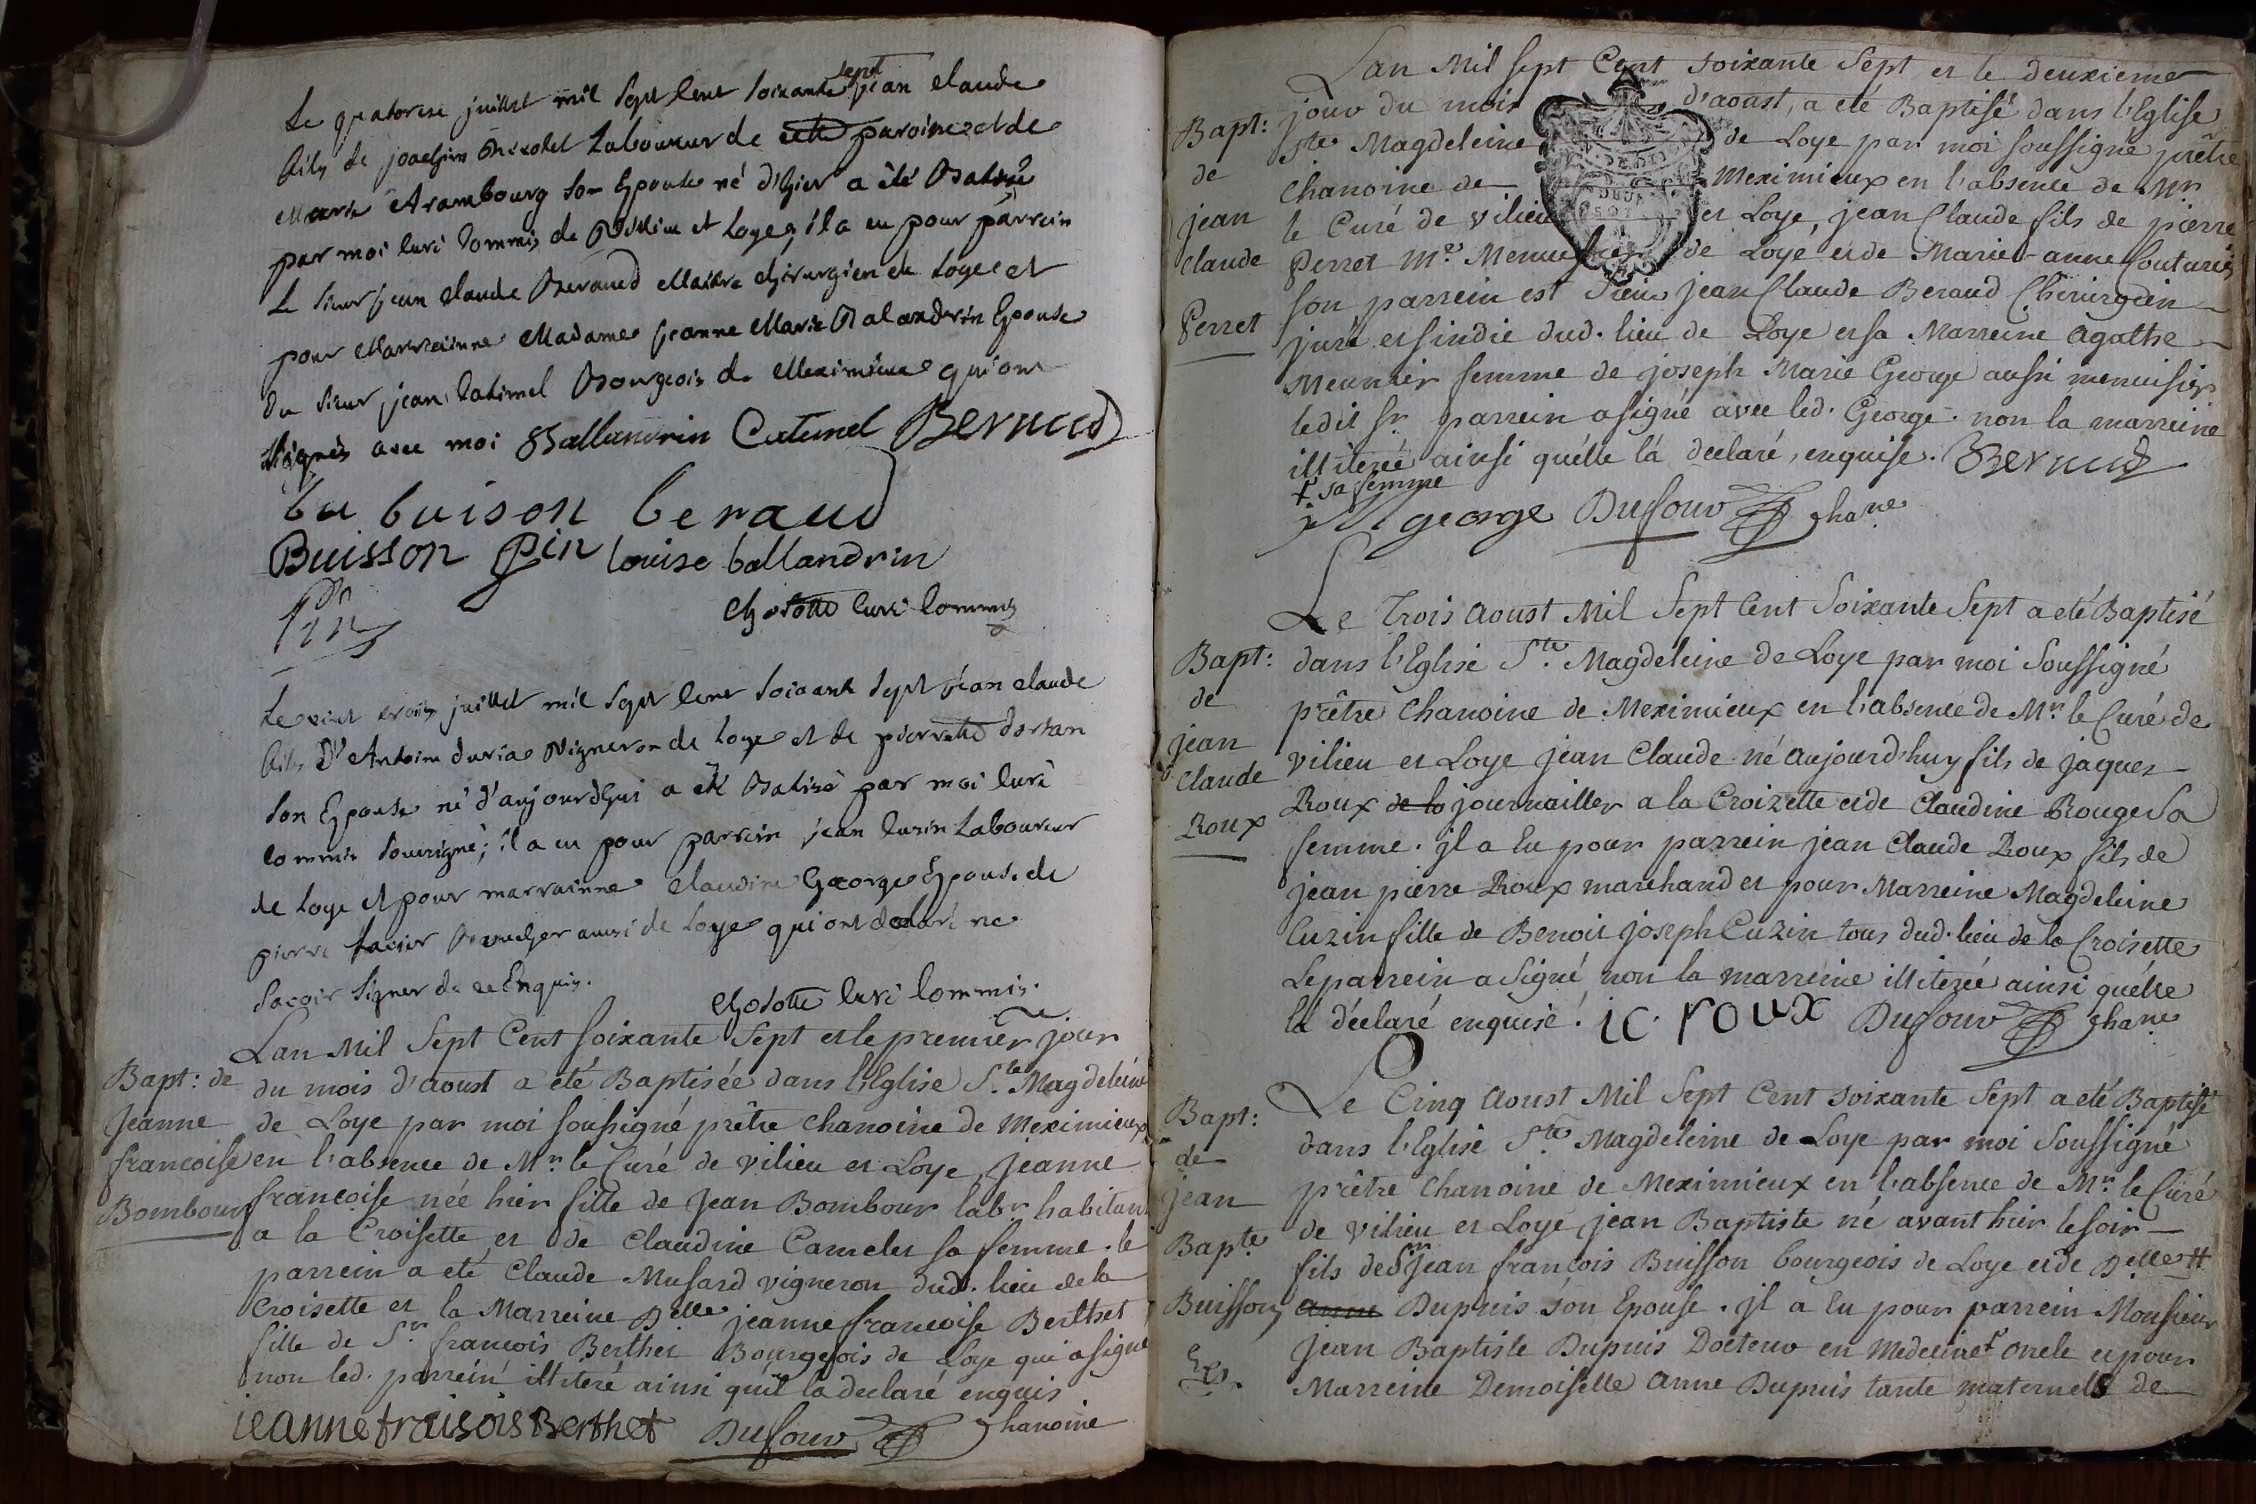 Le quatorse juillet mil sept cent soixante sept jean claude
fils de joachim laboureur de cette paroisse et de
Marie Arambourg son Epouse né d'hier a été Batisé
par moi curé commis de et Loye, il a eu pour parrein
le sieur jean claude Beraud Maitre chirurgien de Loye et
pour Marrainne Madame jeanne Marie Balandrin Epouse
du sieur jean Catimel Bourgeois de Meximieux qui ont
signés avec moi Ballandrin Catimel Beraud
la buison beraud
Buisson Pin louise ballandrin
Pin
Chosotte curé commis
Le vint trois juillet mil sept cent soixante sept jean claude
fils d'Antoine duria vigneron de Loye et de pierrette dortan
son Epouse né d'aujourdhui a été Batisé par moi curé
commis soussigné; il a eu pour parrein jean cusin Laboureur
de Loye et pour marrainne claudine George Epouse de
pierre aussi de Loye qui ont declaré ne
savoir signer de ce Enquis.
Chosotte curé commis.
Bapt: de
Jeanne
francoise
Bombour
Lan Mil Sept Cent soixante Sept et le premier jour
du mois d'aoust a été Baptisée dans l'Eglise Ste Magdeleine
de Loye par moi soussigné prêtre chanoine de Meximieux
en l'absence de Mr le Curé de vilieu et Loye, jeanne
francoise née hier fille de Jean Bombour labr habitant
a la Croisette et de Claudine Cameler sa femme. le
parrein a eté Claude Musard vigneron dud. lieu de la
Croisette et la Marreine Delle jeanne francoise Berthet
fille de Sr francois Berthet Bourgeois de Loye qui a signé
non led. parrein illiteré ainsi qu'il la declaré enquis
jeanne fraisois Berthet Dufour chanoine
Bapt:
de
jean
claude
Perret
Lan Mil sept Cent soixante Sept et le deuxieme
jour du mois d'aoust, a eté Baptisé dans l'Eglise
Ste Magdeleine de Loye par moi soussigné prêtre
Chanoine de Meximieux en l'absence de Mr
le Curé de vilieu et Loye, jean Claude fils de pierre
Perret Me Menuisier de Loye et de Marie-anne Couturier
son parrein est Sieur jean Claude Beraud Chirurgien
juré et sindic dud. lieu de Loye et sa Marreine agathe
Meunier femme de joseph Marie George aussi menuisier
ledit Sr parrein a signé avec led. George. non la marreine
illiterée ainsi qu'elle la declaré, enquise. Beraud
† sa femme
j M george Dufour chane
Bapt:
de
jean
Claude
Roux
Le Trois aoust Mil Sept Cent Soixante Sept a eté Baptisé
dans l'Eglise Ste Magdeleine de Loye par moi Soussigné
prêtre Chanoine de Meximieux en l'absence de Mr le Curé de
vilieu et Loye jean Claude né aujourd'huy fils de jaques
Roux de la journailler a la Croizette et de Claudine Rouge sa
femme. jl a eu pour parrein jean Claude Roux fils de
jean pierre Roux marchand et pour Marreine Magdeleine
Cuzin fille de Benoit joseph Cuzin tous dud. lieu de la Croisette
Le parrein a signé non la marreine illiterée ainsi qu'elle
la déclaré enquise. ic roux Dufour chane
Bapt:
de
jean
Bapte
Buisson
Ex.
Le Cinq aoust Mil Sept Cent soixante Sept a eté Baptisé
dans l'Eglise Ste Magdeleine de Loye par moi Soussigné
prêtre Chanoine de Meximieux en l'absence de Mr le Curé
de vilieu et Loye jean Baptiste né avant hier le soir
fils de Sr jean francois Buisson bourgeois de Loye et de Delle #
anne Dupuis son Epouse. jl a eu pour parrein Monsieur
jean Baptiste Dupuis Docteur en Medecine † oncle et pour
Marreine Demoiselle anne Dupuis tante maternelle de